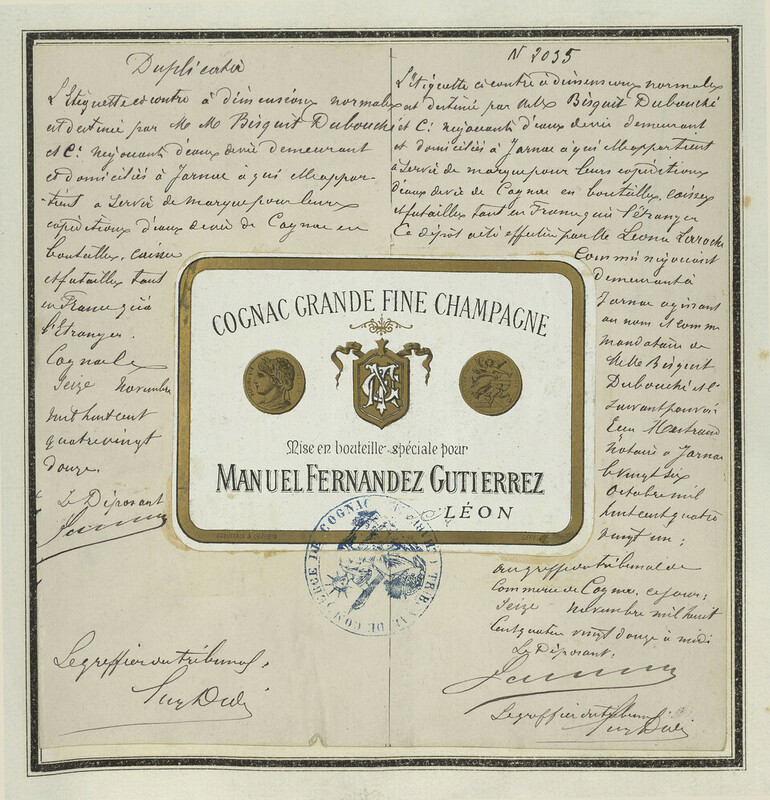 Duplicata
L'Etiquette ci contre à dimensions normales
est destiné par M M Bisquit Dubouché
et Cie négociants d'eaux devie demeurant
et domiciliés à Jarnac à qui elle appar-
-tient à servir de marque pour leurs
expéditions d'eaux devie de Cognac en
bouteilles, caisses
et futailles tant
en France qu'à
l'Etranger.
Cognac le
Seize Novembre
mil huit cent
quatre vingt
douze.
Le Déposant
Le greffier du tribunal,
N 2035
L'Etiquette ci contre à dimensions normales
est destiné par MM Bisquit Dubouché
et Cie négociants d'eaux devie demeurant
et domiciliés à Jarnac à qui elle appartient
à servir de marque pour leurs expéditions
d'eaux devie de Cognac en bouteilles, caisses
et futailles tant en France qu'à l'étranger
Ce dépôt a été effectué par Mr Léona Laroche
Commis négociant
demeurant à
Jarnac agissant
au nom et comme
mandataire de
MM Bisquit
Dubouché et Cie
suivant pouvoir
notaire à Jarnac
le vingt six
Octobre mil
huit cent quatre
vingt un;
au greffe du tribunal de
Commerce de Cognac, ce jour;
Seize Novembre mil huit
Cent quatre vingt douze à midi
Le Déposant:
Le greffier du tribunal
COGNAC GRANDE FINE CHAMPAGNE
Mise en bouteille spéciale pour
MANUEL FERNANDEZ GUTIERREZ
LÉON
TRIBUNAL DE COMMERCE DE COGNAC